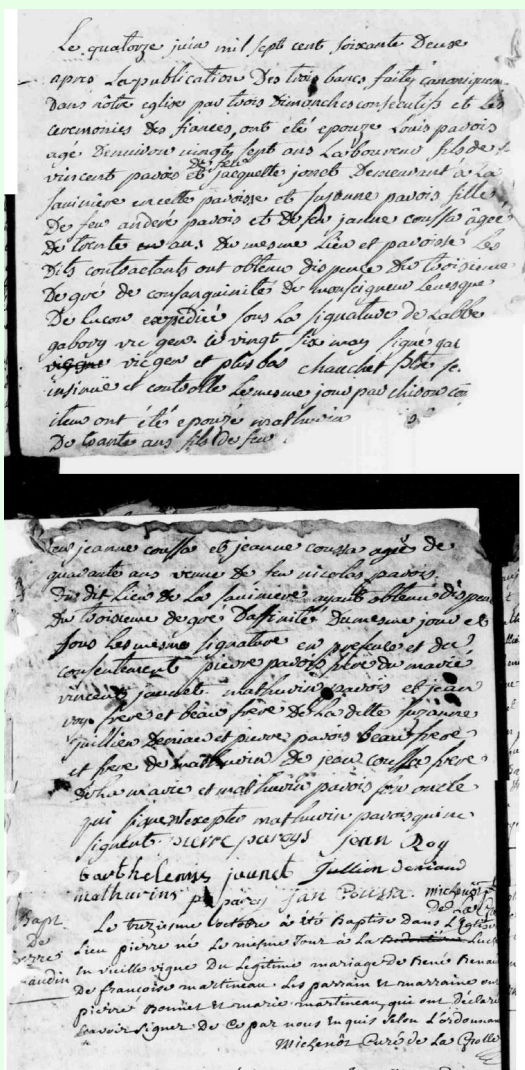 Le quatorze juin mil sept cent soixante Deux
apres La publication Des trois bancs faitte canoniquem
Dans nôtre eglise par trois Dimanches consecutifs et Les
ceremonies des fiances, ont eté epouze Louis parois
agé Denuiron vingt sept ans Laboureur fils de
de feu
vincent parois et jacquette jonet Demeurant a La
saniniere en cette paroisse et suzanne parois fille
De feu andere parois et de feu janne coussa agee
De trente ans du mesme Lieu et paroisse Les
Dits contractants ont obtenu dispence du troisieme
Degré de consanguinité de monseigneur Leuesque
De Lucon expedieé sous La signature de Labbe
gaboury vic gen. le vingt six may signé gab
vic gen et plus bas chauchet ptre se
insinué et controllé Le mesme jour par chison con
item ont étés epouzé mathurin
De trante ans fils de feu
feu jeanne coussa et jeanne coussa ageé de
quarante ans veuue de feu nicolas parois
du dit Lieu de La saniniere ayant obtenu dispen
du troisieme degré Daffinité du mesme jour et
sous Les mesme signature en presence et du
consentement pierre parois frere du marié
vincent jaunet mathurin parois et jean
roy frere et beau frere de La ditte suzanne
jullien deniau et pierre parois beau frere
et frere de mathurin De jean coussa frere
de La mariee et mathurin parois son oncle
qui signent excepter mathurin parois qui ne
signent. pierre pareys jean Roy
barthelemy jaunet Jullien deniaud
mathurins parey jan Coussa. michenot
Bapt.
De
pierre
Le treziesme octobre à été Baptisé Dans L'Eglise
Lieu pierre né Le mesme Jour à La
En vieille vigne Du Legitime mariage de René Renau
De francoise martineau. Les parrain et marraine ont
pierre Bonnet et marie martineau, qui ont déclaré
scavoir signer De Ce par nous Enquis selon L'ordonnan
Michenot Curé de La Grolle